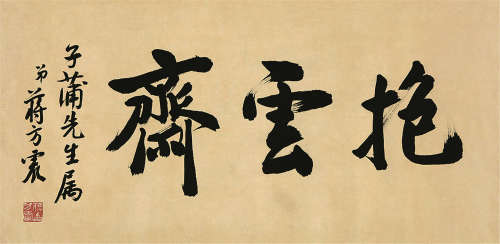 抱雲齋
子蒲先生属
弟蔣方震